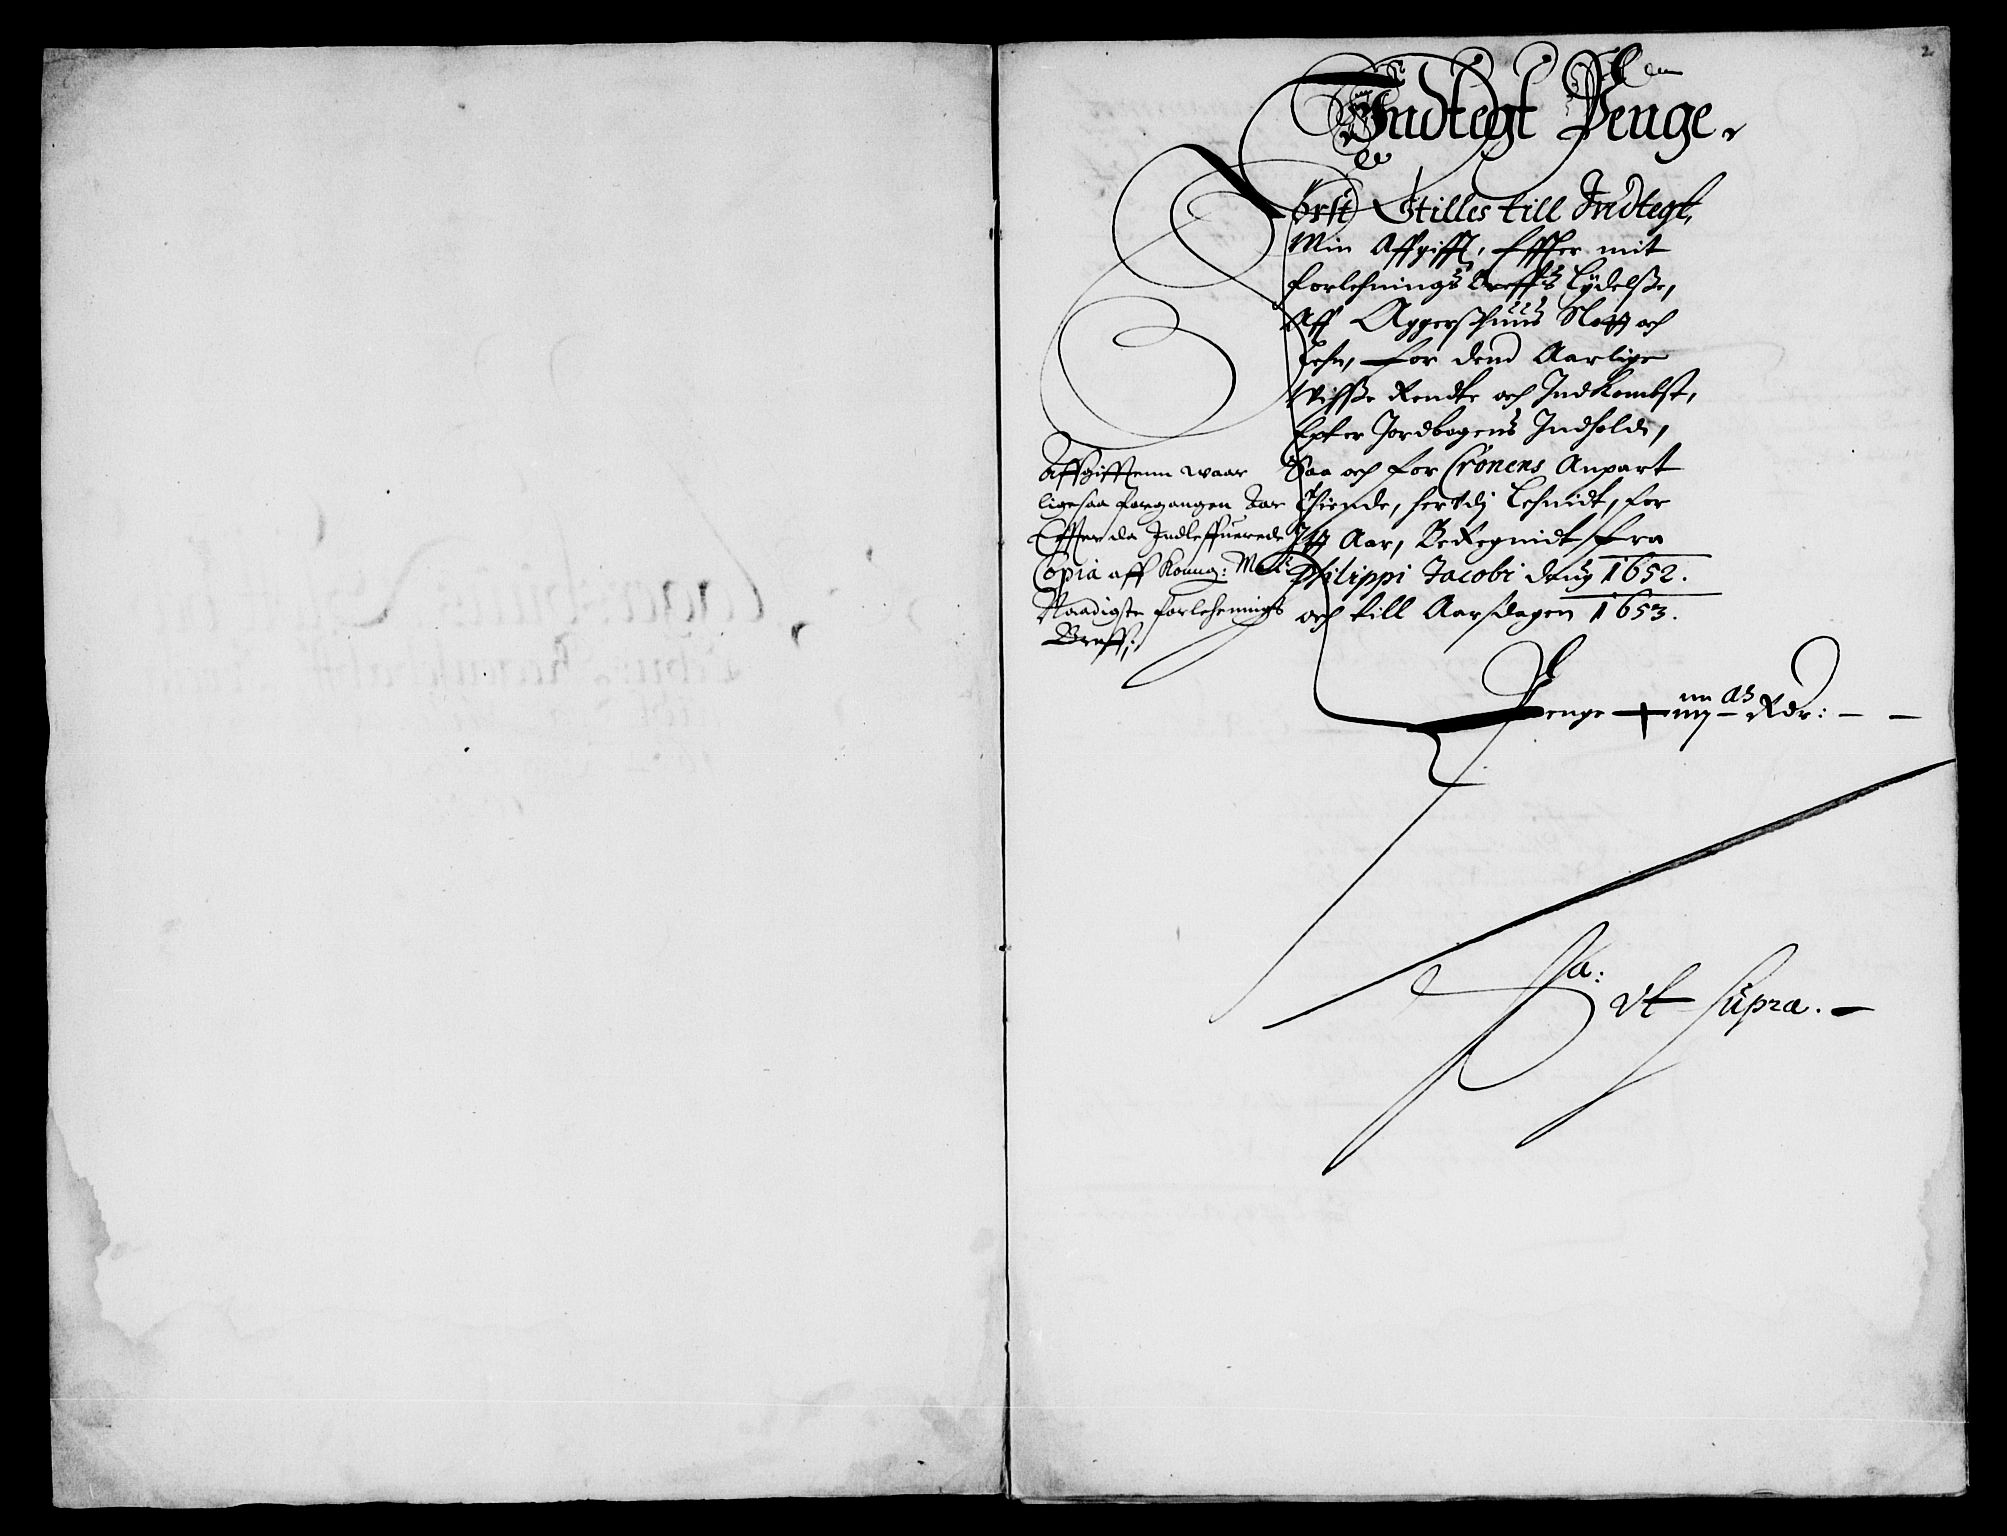 2
Indtegt Penge.
Först Stilles till Indtegt,
Min Affgifft, Effter mit
forlehnings breffs Lÿdelße,
Aff Aggerßhuus Slott och
Lehn, for dend Aarlige
Visße Rendte och Indkombst,
Epter Jordbogens Indhold,
Saa och for Cronens Anpart
Thiende, her vdj Lehnidt, for
Itt Aar, Beregnidt fra
Philippi Jacobi 1652.
och till Aarsdagen 1653.
Affgifftenn waar
ligesaa forgangen Aar
Effter da Indleffuerede
Copia aff Konng: Maÿ:
Naadigste forlehnings
Breff;
Penge Rdr:
La:
vt supra.